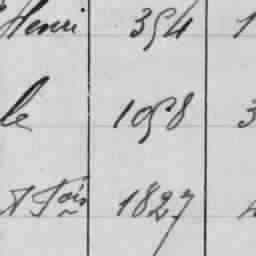 Henri 354 1
le 1058 3
A Fois 1827